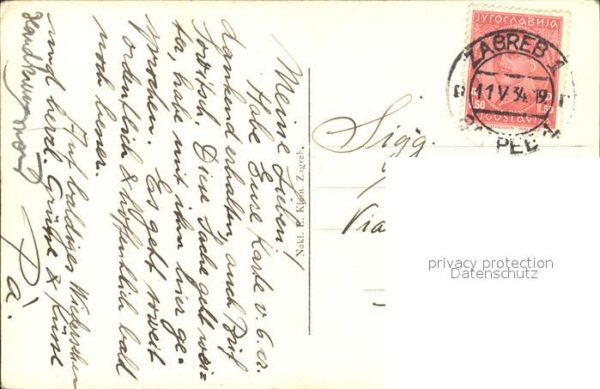 Meine Lieben!
Habe Eure Karte v. 6. cr.
dankend erhalten, auch Brief
Die Sache geht wei-
ter, habe mit ihm hier ge-
sprochen. Es geht soweit
ordentlich & hoffentlich bald
noch besser.
Auf baldiges Wiedersehen
und herzl. Grüsse & Küsse
Pa.
Nakl. E. Klein, Zagreb.
ЈУГОСЛАВИЈА
1.50 1.50
JUGOSLAVIJA
ZAGREB 1
11 V 34 19
Sigg.
Via
privacy protection
Datenschutz